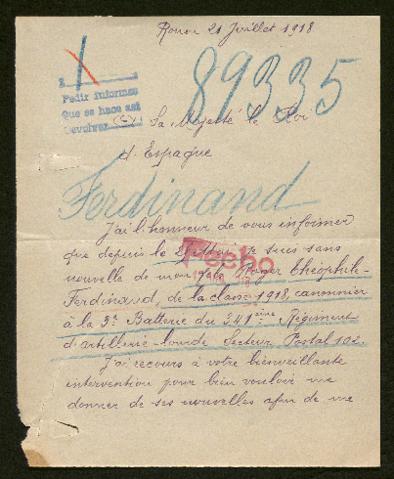 Rouen 21 Juillet 1918
89335
Pedir informes
Que se hace así
Devolver
Sa Majesté le Roi
d'Espagne
Ferdinand
J'ai l'honneur de vous informer
que depuis le je suis sans
nouvelle de mon Roger Théophile-
Ferdinand, de la classe 1918, canonnier
à la 3e Batterie du 341ème Régiment
d'artillerie lourde Secteur Postal 102.
Fecho
J'ai recours à votre bienveillante
intervention pour bien vouloir me
donner de ses nouvelles afin de me